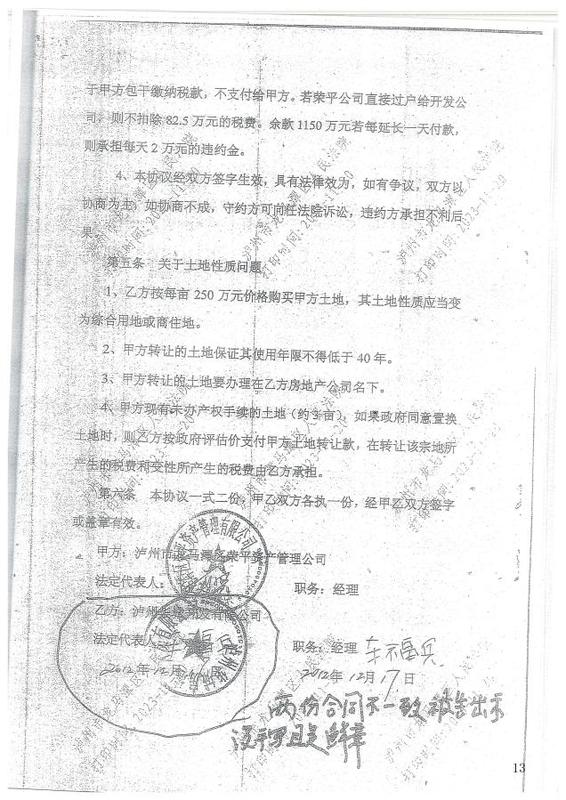 于甲方包干缴纳税款，不支付给甲方。若荣平公司直接过户给开发公
司，则不扣除 82.5 万元的税费。余款 1150 万元若每延长一天付款，
则承担每天 2 万元的违约金。
4、本协议经双方签字生效，具有法律效力，如有争议，双方以
协商为主，如协商不成，守约方可向任法院诉讼，违约方承担不利后
果。
第五条 关于土地性质问题
1、乙方按每亩 250 万元价格购买甲方土地，其土地性质应当变
为综合用地或商住地。
2、甲方转让的土地保证其使用年限不得低于 40 年。
3、甲方转让的土地要办理在乙方房地产公司名下。
4、甲方现有未办产权手续的土地（约 3 亩），如果政府同意置换
土地时，则乙方按政府评估价支付甲方土地转让款，在转让该宗地所
产生的税费和变性所产生的税费由乙方承担。
第六条 本协议一式二份，甲乙双方各执一份，经甲乙双方签字
或盖章有效。
甲方：泸州市龙马潭区荣平资产管理公司
法定代表人： 职务：经理
乙方：泸州 开发有限公司
法定代表人 职务：经理
2012年12月 2012年12月17日
两份合同不一致 被告出示
没手写且是鲜章
13